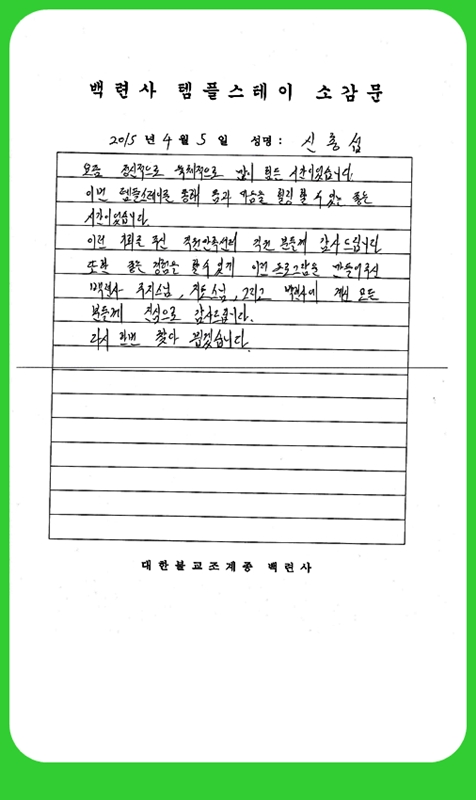 백련사 템플스테이 소감문
2015 년 4 월 5 일 성명 : 신홍섭
요즘 정신적으로 육체적으로 많이 힘든 시간이었습니다.
이번 템플스테이를 통해 몸과 마음을 힐링 할 수 있는 좋은
시간이었습니다.
이런 기회를 주신 직원만족센터 직원 분들께 감사드립니다
또한 좋은 경험을 할 수 있게 이런 프로그램을 만들어주신
백련사 주지스님, 지도스님, 그리고 백련사에 계신 모든
분들께 진심으로 감사드립니다.
다시 한번 찾아 뵙겠습니다.
대한불교조계종 백련사